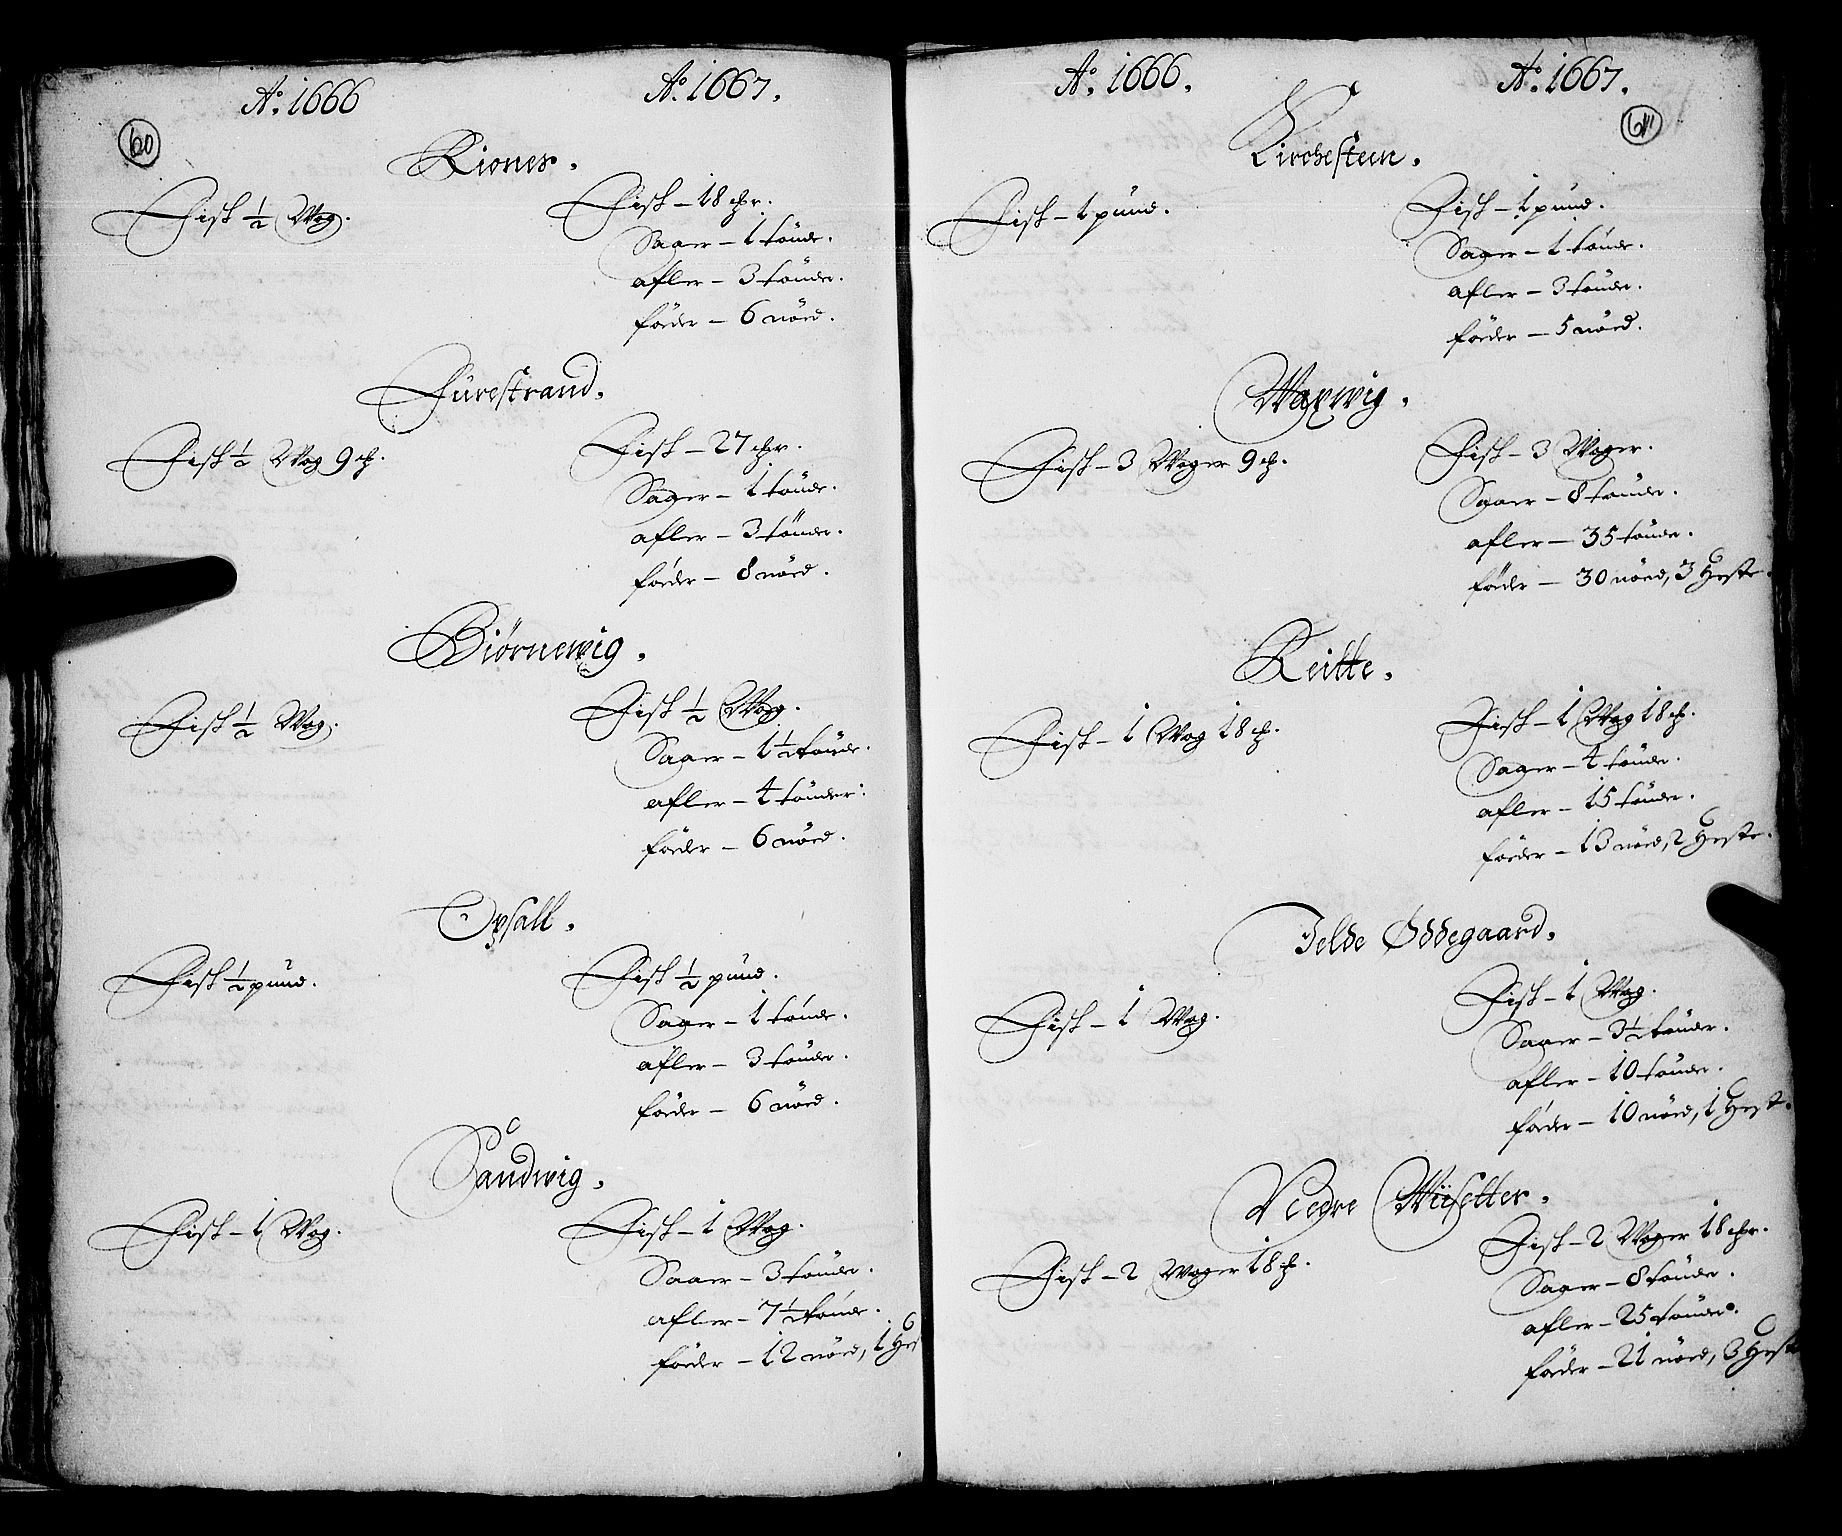 Aº. 1666
Aº. 1667.
60
Kiones.
Fisk ½ Wog.
Fisk – 18 ℔r.
Saaer – 1 tönde.
afler – 3 tönder.
föeder – 6 nöed.
Furestrand.
Fisk ½ Wog 9 ℔.
Fisk – 27 ℔r.
Saaer – 1 tönde.
afler – 3 tönder.
föder – 8 nöed.
Biørnewig.
Fisk ½ Wog.
Fisk ½ Wog.
Saaer – 1½ tönde.
afler – 4 tönder.
föeder – 6 nöed.
Opsall.
Fisk ½ pund.
Fisk ½ pund.
Saaer – 1 tönde.
afler – 3 tönder.
föeder – 6 nöed.
Sandwig.
Fisk – 1 Wog.
Fisk – 1 Wog.
Saaer – 3 tönder.
afler – 7½ tönde.
föeder – 12 nöed, 1 Hes
Aº. 1666.
Aº. 1667.
61
Kirchesteen.
Fisk – 1 pund.
Fisk – 1 pund.
Saaer – 1 tönde.
afler – 3 tönder.
föeder – 5 nöed.
Waxwig.
Fisk – 3 Woger 9 ℔.
Fisk – 3 Woger.
Saaer – 8 tönder.
afler – 35 tönder.
föder – 30 nöed, 3 Heste.
Reitte.
Fisk – 1 Wog 18 ℔.
Fisk – 1 Wog 18 ℔.
Saaer – 4 tönder.
afler – 15 tönder.
föeder – 13 nöed, 2 Heste.
Jelde Øddegaard.
Fisk – 1 Wog.
Fisk – 1 Wog.
Saaer – 3½ tönder.
afler – 10 tönder.
föeder – 10 nöed, 1 Hest.
Nedre Wiisetter.
Fisk – 2 Woger 18 ℔.
Fisk – 2 Woger 18 ℔r.
Saaer – 8 tönder.
afler – 25 tönder.
föeder – 21 nöed, 3 Heste